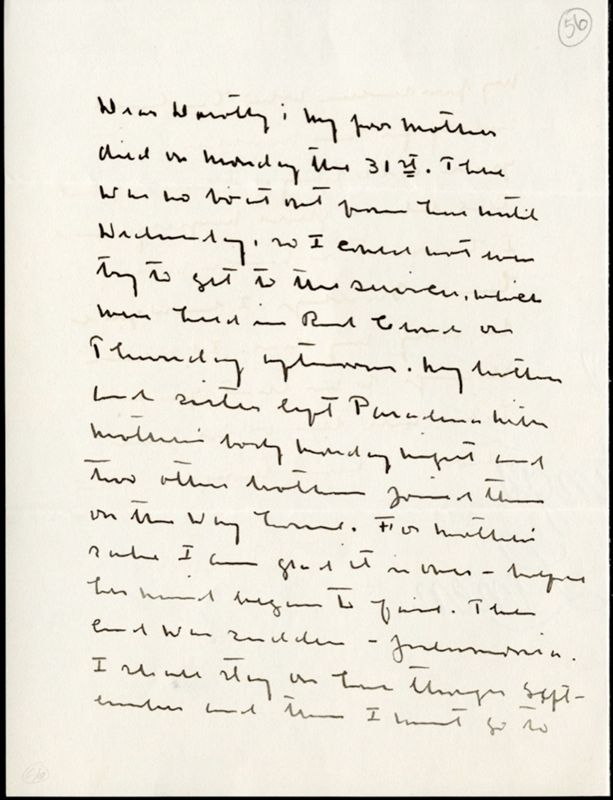 56
Dear Dorothy: My poor mother
died on Monday the 31st. There
was no boat out from here until
Wednesday, so I could not even
try to get to the services, which
were held in Red Cloud on
Thursday afternoon. My brother
and sister left Pasadena with
mother's body Monday night and
two other brothers joined them
on the way home. For mother's
sake I am glad it is over - before
her mind began to fail. The
end was sudden - pneumonia.
I shall stay on here through Sept-
ember and then I must go to
56